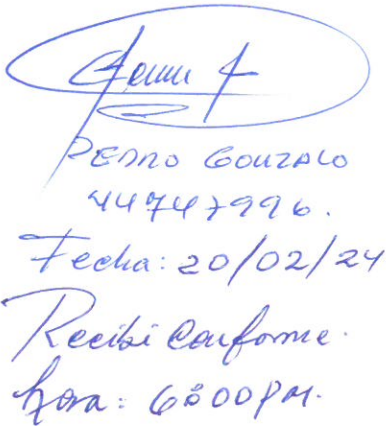 PEDRO GONZALO
44747996.
Fecha: 20/02/24
Recibi Conforme.
hora: 6:00 PM.